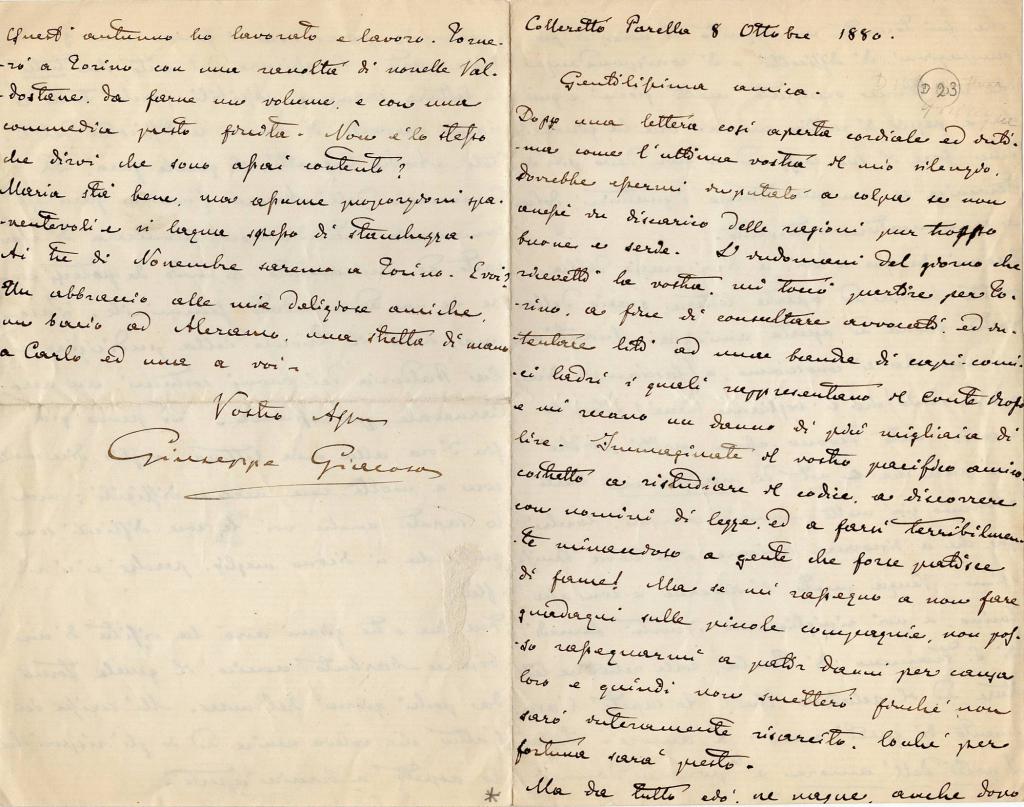 Colleretto Parella 8 Ottobre 1880.
D 23
Gentilissima amica.
Dopo una lettera così aperta cordiale ed inti-
ma come l'ultima vostra il mio silenzio,
dovrebbe essermi imputato a colpa se non
avessi in discarico delle ragioni pur troppo
buone e serie. L'indomani del giorno che
ricevetti la vostra, mi toccò partire per To-
rino, a fine di consultare avvocati, ed in-
tentare liti ad una banda di capi-comi-
ci ladri i quali rappresentano il Conte Rosso
e mi recano un danno di più migliaia di
lire. Immaginate il vostro pacifico amico
costretto a ristudiare il codice, a discorrere
con uomini di legge, ed a farsi terribilmen-
te minaccioso a gente che forse patisce
di fame! Ma se mi rassegno a non fare
guadagni sulle piccole compagnie, non pos-
so rassegnarmi a patir danni per causa
loro e quindi non smetterò finché non
sarò interamente risarcito. Locché per
fortuna sarà presto.
Ma da tutto ciò, ne nasce, anche dopo
Quest' autunno ho lavorato e lavoro. Torne-
rò a Torino con una raccolta di novelle Val-
dostane, da farne un volume, e con una
commedia presto finita. Non è lo stesso
che dirvi che sono assai contento?
Maria stà bene, ma assume proporzioni spa-
ventevoli e si lagna spesso di stanchezza.
Ai tre di Novembre saremo a Torino. E voi?
Un abbraccio alle mie deliziose amiche,
un bacio ad Aleramo, una stretta di mano
a Carlo ed una a voi.
Vostro Aff
Giuseppe Giacosa
*